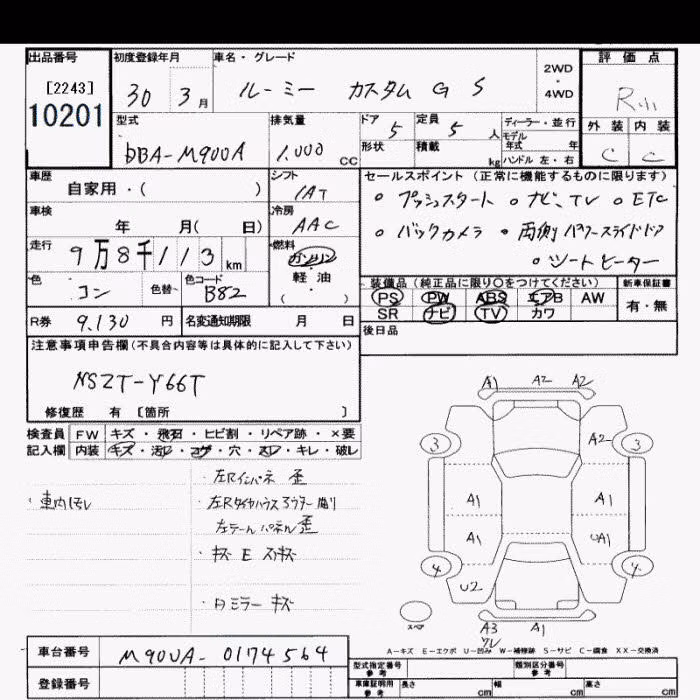 出品番号
[2243]
10201
初度登録年月
30 3月
車名・グレード
ルーミー カスタム G S
2WD
・
4WD
評価点
R小
外装 内装
C C
型式
DBA-M900A
排気量
1,000 CC
ドア
5
定員
5 人
形状
積載
kg
ディーラー・並行
モデル
年式 年
ハンドル 左・右
車歴
自家用・( )
シフト
IAT
車検
年 月( 日)
冷房
AAC
走行
9万8千113 km
燃料
ガソリン
軽油
( )
色
コン
色替
色コード
B82
R券
9.130 円
名変通知期限 月 日
セールスポイント(正常に機能するものに限ります)
○ プッシュスタート ○ ナビ、TV ○ ETC
○ バックカメラ ○ 両側パワースライドドア
○ シートヒーター
装備品(純正品に限り○をつけてください)
PS PW ABS エアB AW
SR ナビ TV カワ
新車保証書
有・無
後日品
注意事項申告欄(不具合内容等は具体的に記入して下さい)
NSZT-Y66T
修復歴 有 [箇所 ]
検査員
記入欄
FW キズ・飛石・ヒビ割・リペア跡・×要
内装 キズ・汚レ・コゲ・穴・スレ・キレ・破レ
・車内汚レ
・左Rインパネ 歪
・左Rタイヤハウス アウター曲り
左テールパネル歪
・キズ E スリキズ
・Dミラー キズ
A1 A2 A2
3 A2 3
A1 A1
A1 UA1
4 U2
スペア
A3 A1
ワレ
A-キズ E-エクボ U-凹み W-補修跡 S-サビ C-腐食 XX-交換済
車台番号
M900A-0174564
登録番号
型式指定番号
参考
類別区分番号
参考
車庫証明用
参考
長さ cm
幅 cm
高さ cm